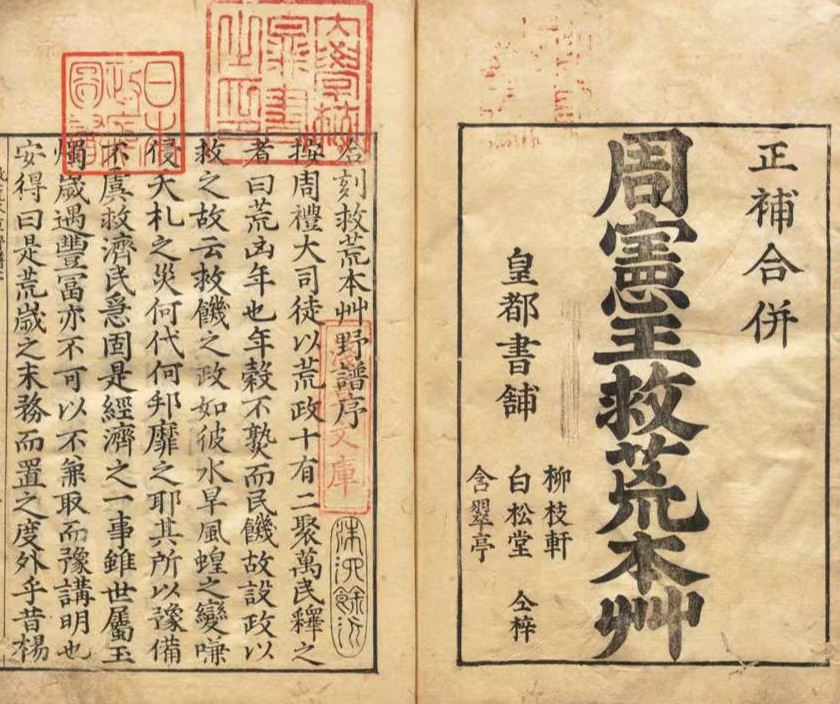 正補合併
周憲王救荒本艸
皇都書舖
柳枝軒
白松堂 仝梓
含翠亭
日本政府圖書
淺草文庫
合刻救荒本艸野譜序
按周禮大司徒以荒政十有二聚萬民釋之
者曰荒凶年也年穀不熟而民饑故設政以
救之故云救饑之政如彼水旱風蝗之變嗛
侵夭札之災何代何邦靡之耶其所以豫備
不虞救濟民急固是經濟之一事雖世屬玉
燭歲遇豐冨亦不可以不兼取而豫講明也
安得曰是荒歲之末務而置之度外乎昔楊